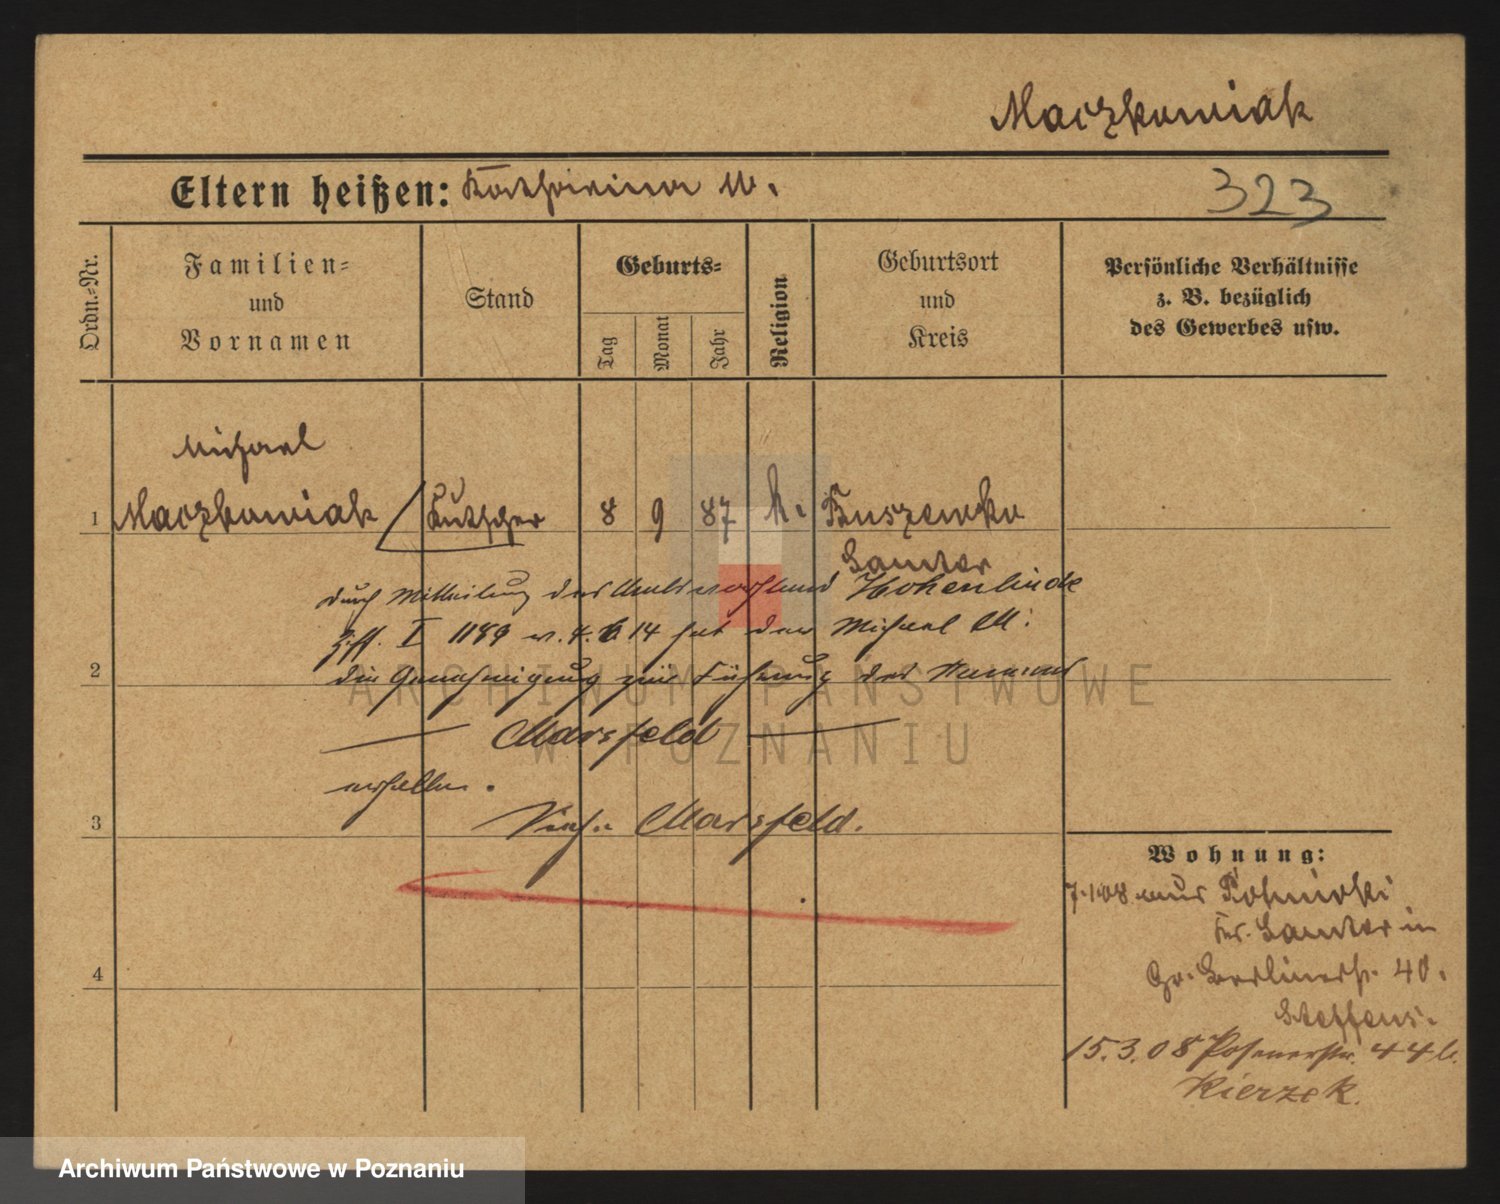 Maczkowiak
Eltern heißen: Katharina M.
323
Ordn.-Nr.
Familien- und Vornamen
Stand
Geburts-
Tag
Monat
Jahr
Religion
Geburtsort und Kreis
Persönliche Verhältnisse z. B. bezüglich des Gewerbes usw.
Michael
1 Maczkowiak Kutscher 8 9 87 k. Buszewko
Samter
durch Mitteilung des Hohenlinde
I 1189 v. 4. 6 14 hat der Michael M.
2 die Genehmigung zur Führung des Namens
— Marsfeld —
erhalten.
3 Marsfeld.
4
Wohnung:
7.1.08 aus
Kr. Samter in
Gr. Berlinerstr. 40.
Steffens.
15.3.08 Posenerstr. 44
Kierzek.
ARCHIWUM PAŃSTWOWE
W POZNANIU
Archiwum Państwowe w Poznaniu